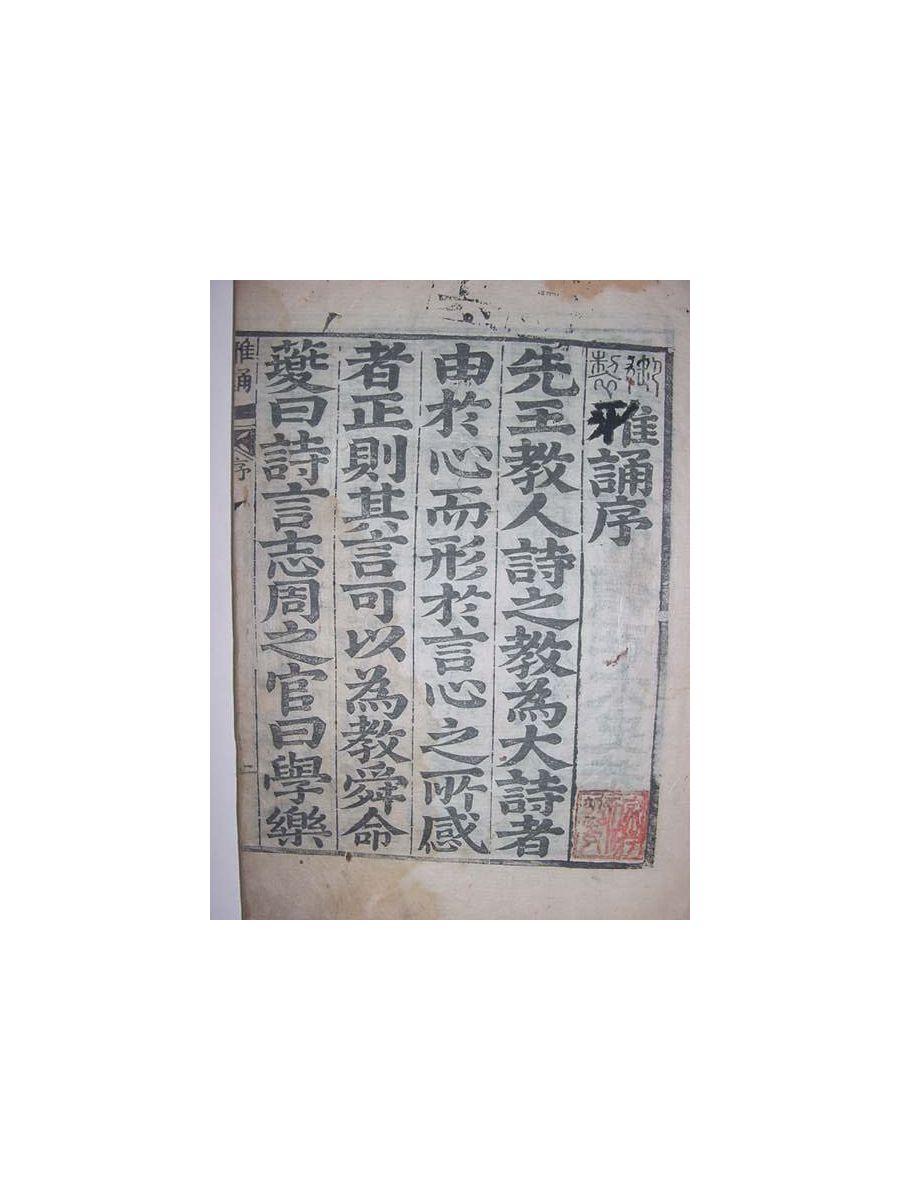 御製雅誦序
先王教人詩之教為大詩者
由於心而形於言心之所感
者正則其言可以為教舜命
䕫曰詩言志周之官曰學樂
雅誦 序 一